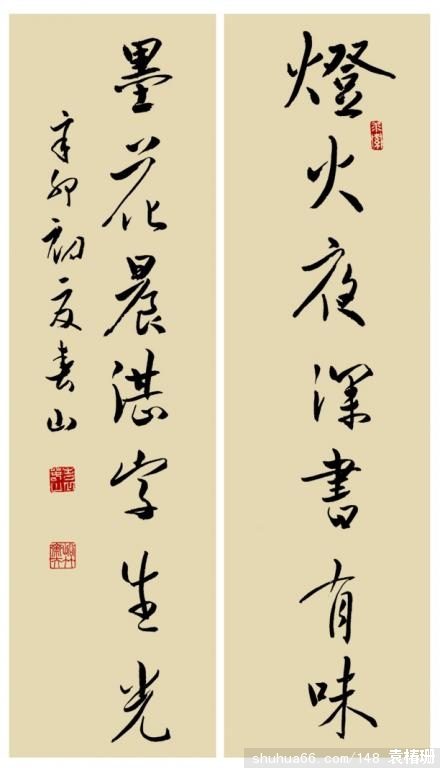 燈火夜深書有味
墨花晨湛字生光
辛卯初夏春山
shuhua66.com/148 袁椿珊